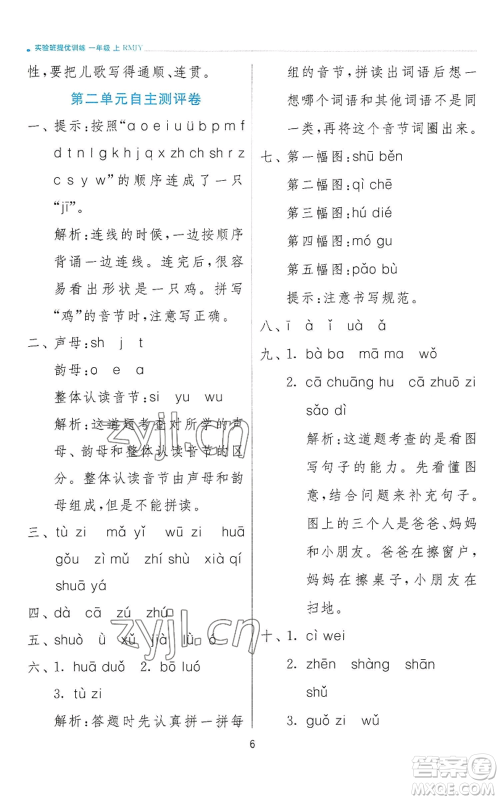 实验班提优训练 一年级 上 RMJY
性,要把儿歌写得通顺、连贯。
第二单元自主测评卷
一、提示:按照“ɑ o e i u ü b p m f
d t n l g k h j q x zh ch sh r z
c s y w”的顺序连成了一只
“jī”。
解析:连线的时候,一边按顺序
背诵一边连线。连完后,很容
易看出形状是一只鸡。拼写
“鸡”的音节时,注意写对声调。
二、声母:sh j t
韵母:o e ɑ
整体认读音节:si yu wu
解析:这道题考查对所学的声
母、韵母与整体认读音节的区
分。整体认读音节由声母和韵
母组成,但是不能拼读。
三、tù zi mǎ yǐ wū zi huā
gǒu zǐ mù shù xià qí
shí yú
四、dà cā zú zhú
五、shuò ù xǔ lià jù
六、1. huā duǒ 2. bō luó
3. tù zi
解析:答题时先认真拼一拼每
组的音节,拼读出词语后想一
想哪个词语和其他词语不是一
类,再将这个音节词圈出来。
七、第一幅图:shū běn
第二幅图:qì chē
第三幅图:hú dié
第四幅图:mó gu
第五幅图:pǎo bù
提示:注意书写规范。
八、ī à ǐ uà ǎ
九、1. bà ba mā ma wǒ
2. cā chuāng hu cā zhuō zi
sǎo dì
解析:这道题考查的是看图
写句子的能力。先看懂图
意,结合问题来补充句子。
图上的三个人是爸爸、妈妈
和小朋友。爸爸在擦窗户,
妈妈在擦桌子,小朋友在
扫地。
十、1. cì wei
2. zhēn shàng shān
shǔ
3. guǒ zi wǔ
6
zyjl.cn
zyjl.cn